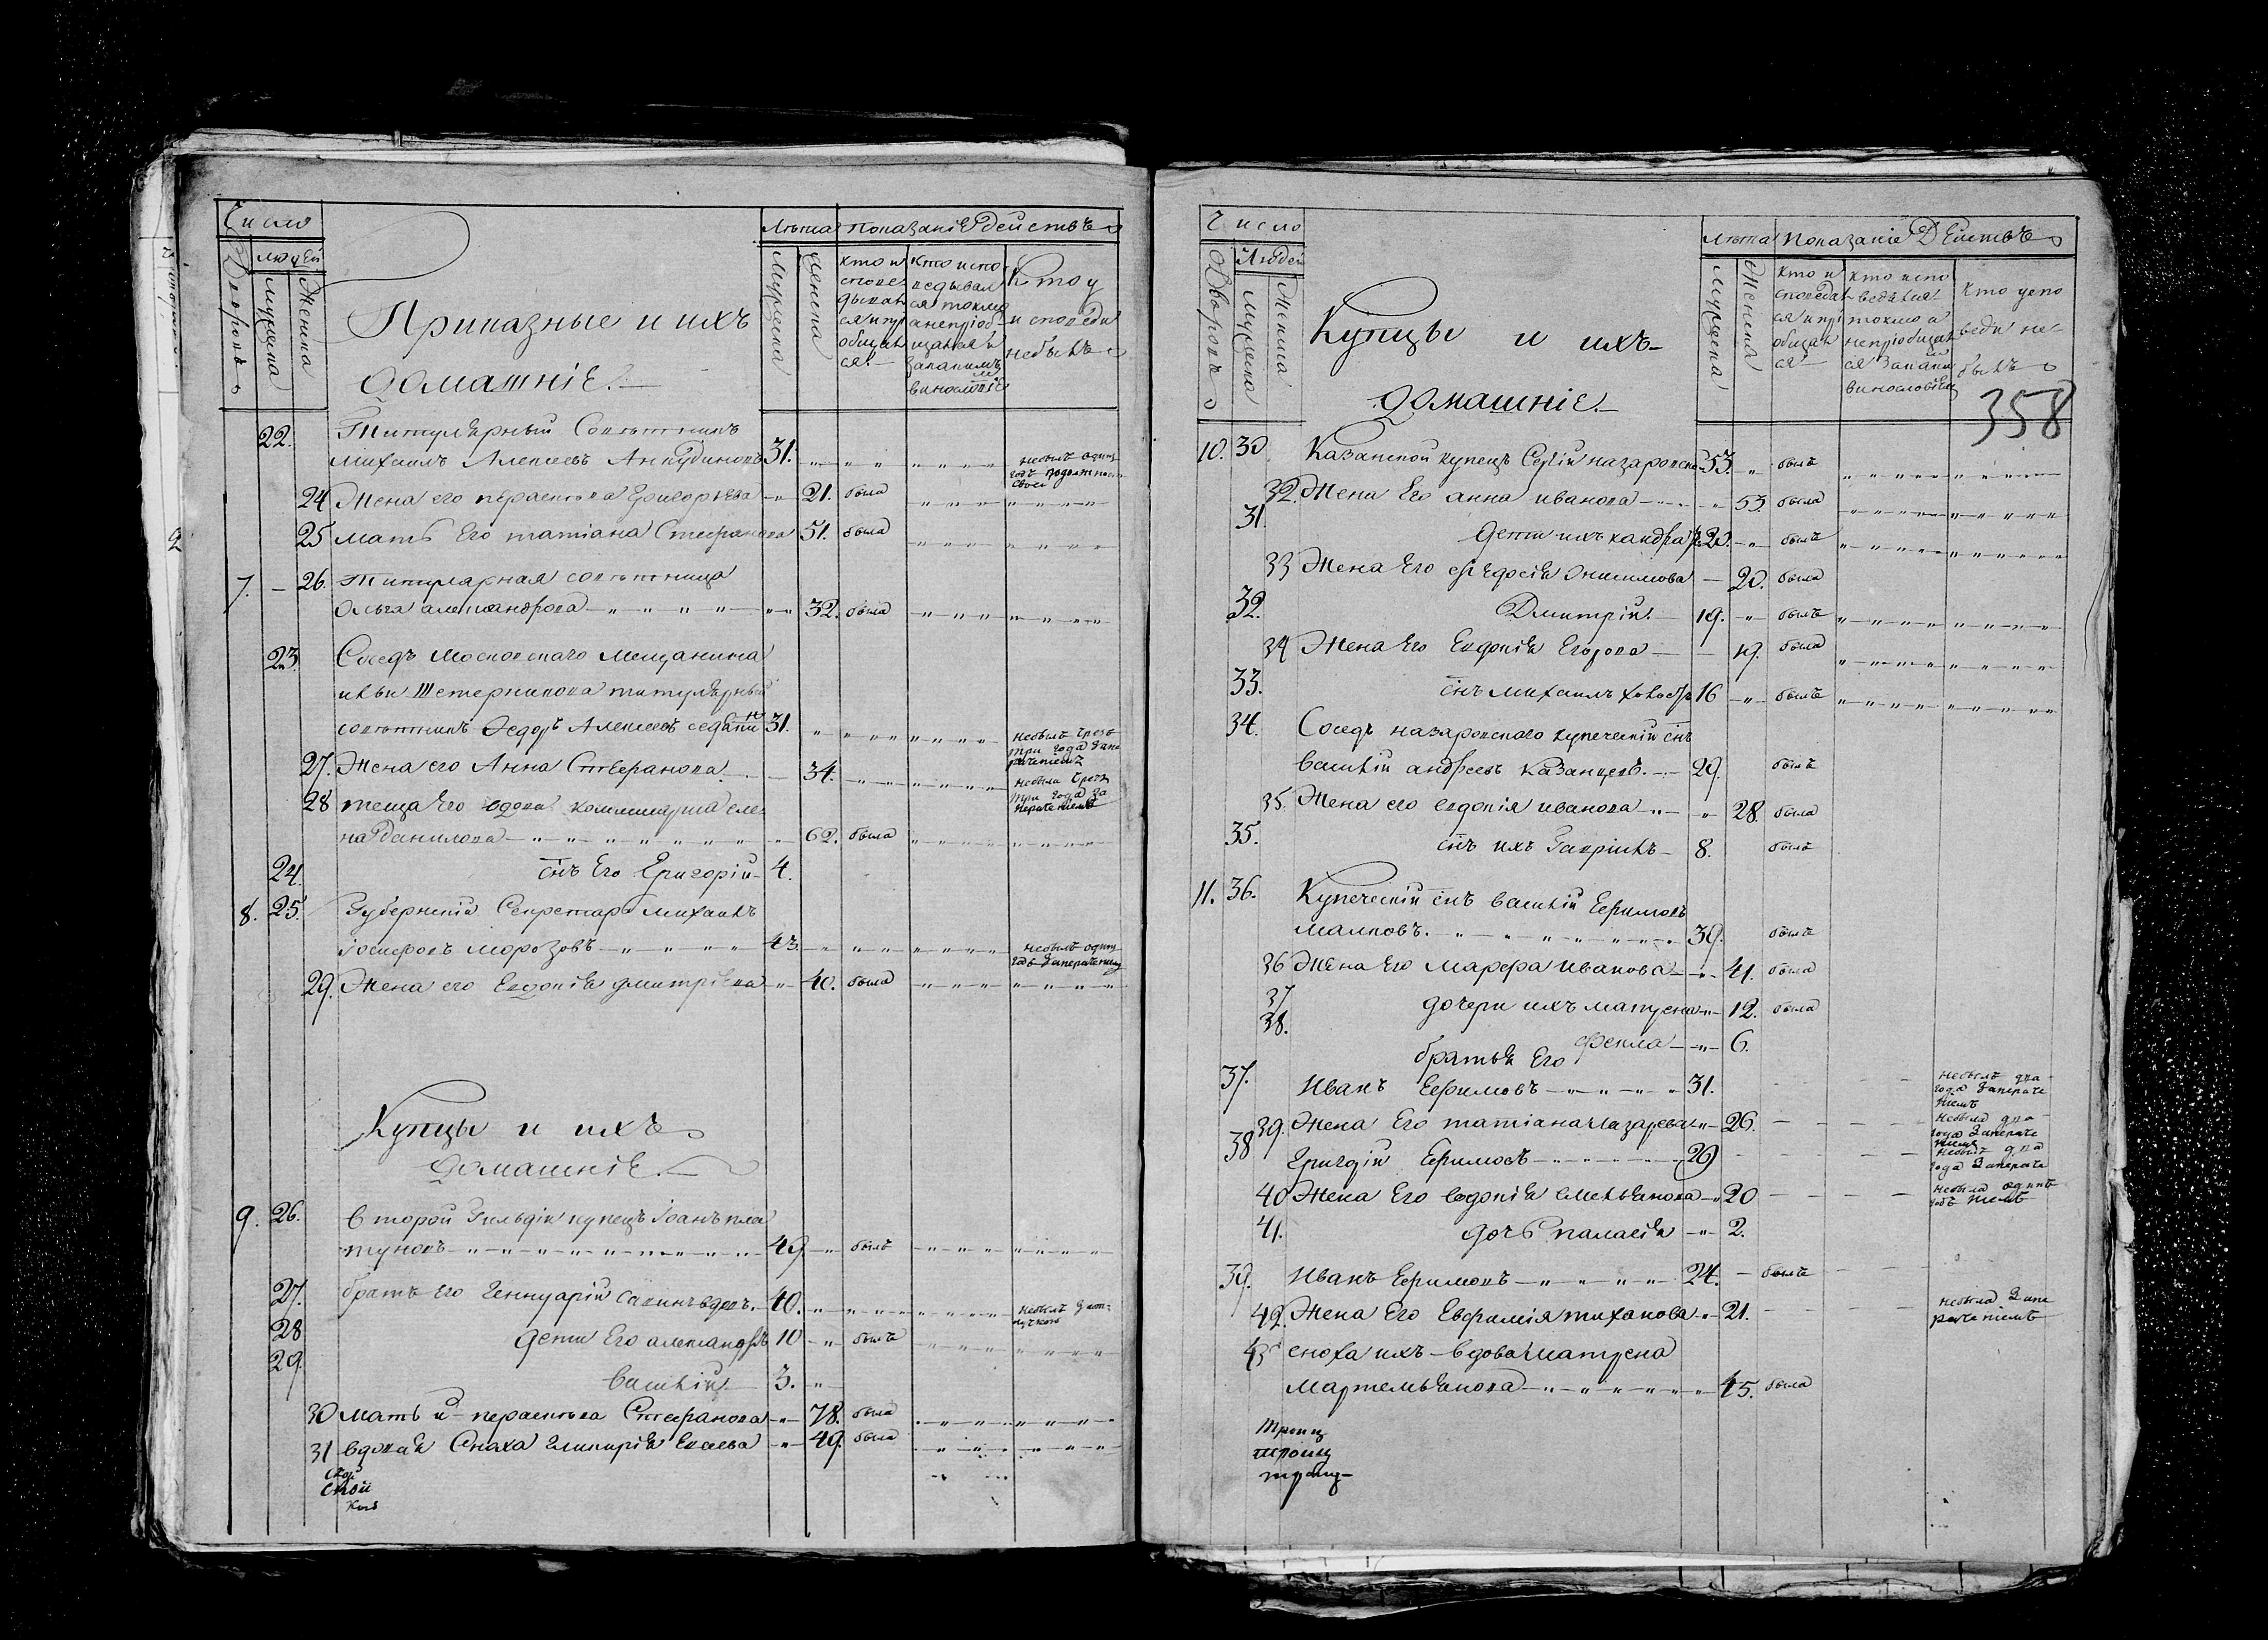 Число
людей
Дворовъ
Мужеска
Женска
Приказные и ихъ
домашніе.
Лѣта
Показаніе действъ
Мужеска
Женска
кто и
спове
дывал
ся и прі
общал
ся
кто испо
ведывал
ся токмо
а непріоб
щался и
за какимъ
винословіе
Кто у
исповеди
небылъ
22. Титулярный Советникъ
Михаилъ Алексеевъ Анкудиновъ 31.
небылъ одинъ
годъ подолжнос
своей
24 Жена его прасковья Григорьева 21. была
25 мать Его татіана Стефанова 51. была
7. 26. титулярная советница
Ольга александрова 32. была
23. Соседъ московскаго мещанина
титулярный
советникъ Федоръ Алексеевъ 31.
небылъ чрезъ
три года зане
рачениемъ
27. Жена его Анна Стефанова 34.
небыла чрезъ
три года за
нерачениемъ
28 теща Его вдова еле
на Данилова 62. была
24. снъ Его Григорій 4.
8. 25. Губернскій Секретарь михаилъ
Іосифовъ морозовъ 43.
небылъ одинъ
годъ занерачением
29. Жена его Евдокія дмитріева 40. была
Купцы и ихъ
домашніе.
9. 26. второй Гильдіи купецъ Іоанъ пла
туновъ 49 былъ
27. братъ его Геннуарій 40.
небылъ заот
лучкою
28 дети Его александръ 10 былъ
29. василій 3.
30 мать и прасковья Стефанова 78. была
31 вдовая Снаха гликирія Елесева 49. была
358
Число
Людей
Дворовъ
Мужеска
Женска
Купцы и ихъ
домашніе.
Лѣта
Показаніе Действъ
Мужеска
Женска
кто и
споведал
ся и прі
общал
ся
кто испо
ведался
токмо а
непріобщал
ся за каким
винословіем
Кто уиспо
веди не
былъ
10. 30 Казанской купецъ Сергій назаровской 53. былъ
32. Жена Его анна иванова 53. была
31. дети ихъ 20. былъ
33 Жена Его феодосія Онисимова 20. была
32. Дмитрій. 19. былъ
34 Жена Его Евдокія Егорова 19. была
33. снъ михаилъ 16 былъ
34. Соседъ назаровского купеческій снъ
василій андреевъ Казанцевъ. 29. былъ
35. Жена его евдокія иванова 28. была
35. снъ ихъ Гавріилъ 8. былъ
11. 36. Купеческій снъ василій Ефимовъ
малковъ. 39. былъ
36 Жена Его марфа иванова 41. была
37 дочери ихъ матрена 12. была
38. фекла 6.
братья Его
37. Иванъ Ефимовъ 31.
небылъ два
года занераче
ниемъ
39. Жена Его татіана лазарева 26.
небыла два
года занераче
ниемъ
38 Григорій Ефимовъ 29
небылъ два
года занераче
40 Жена Его евдокія емельянова 20
небыла одинъ
годъ ниемъ
41. дочь палагія 2.
39. Иванъ Ефимовъ 24. былъ
42. Жена Его Евфимія тиханова 21.
небыла зане
рачениемъ
43 сноха ихъ вдова матрена
мартемьянова 45. была
троиц
троиц
троиц